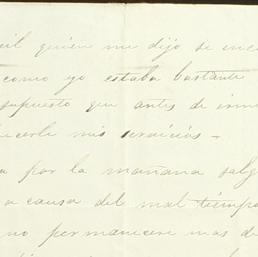 cil quien me dijo se enc
como yo estaba bastante
supuesto que antes de irme
ecerle mis servicios.-
a por la mañana salg
a causa del mal tiempo
no permanecere mas de